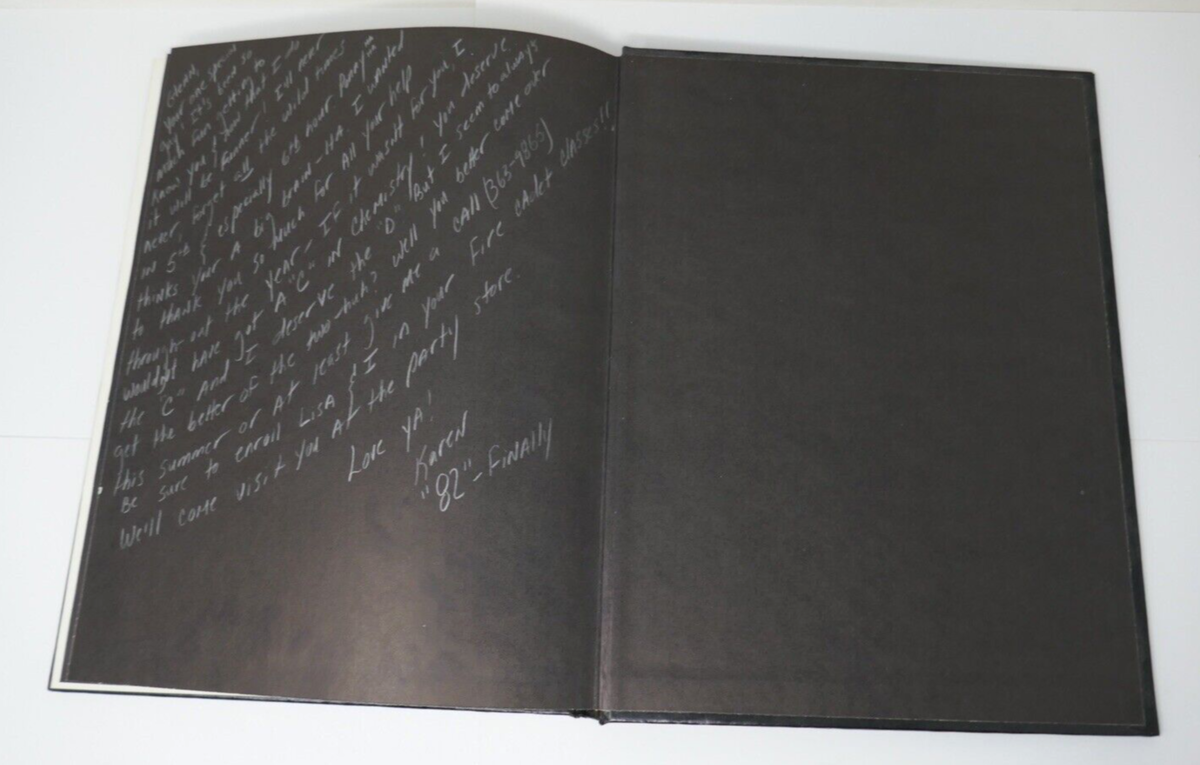 your one
I's been so
much fun getting to
know you & that I do
it will be Forever! I'll never
never, forget all the wild times
in 5th & especially 6th hour
thinks your A big brain-HA. I wanted
to thank you so much for All your help
through-out the year- IF it wasn't for you, I
wouldn't have got A "C" in Chemistry! you deserve
the "C" And I deserve the "D" But I seem to always
get the better of the two-huh? Well you better come over
this summer or At least give me a call (363-9365)
Be sure to enroll LisA & I in your Fire cAdet classes!!
We'll come visit you At the party store.
Love yA!
Karen
"82"-Finally